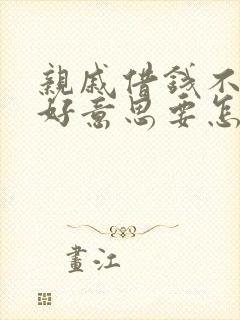 親戚借錢不
好意思要怎
畫江